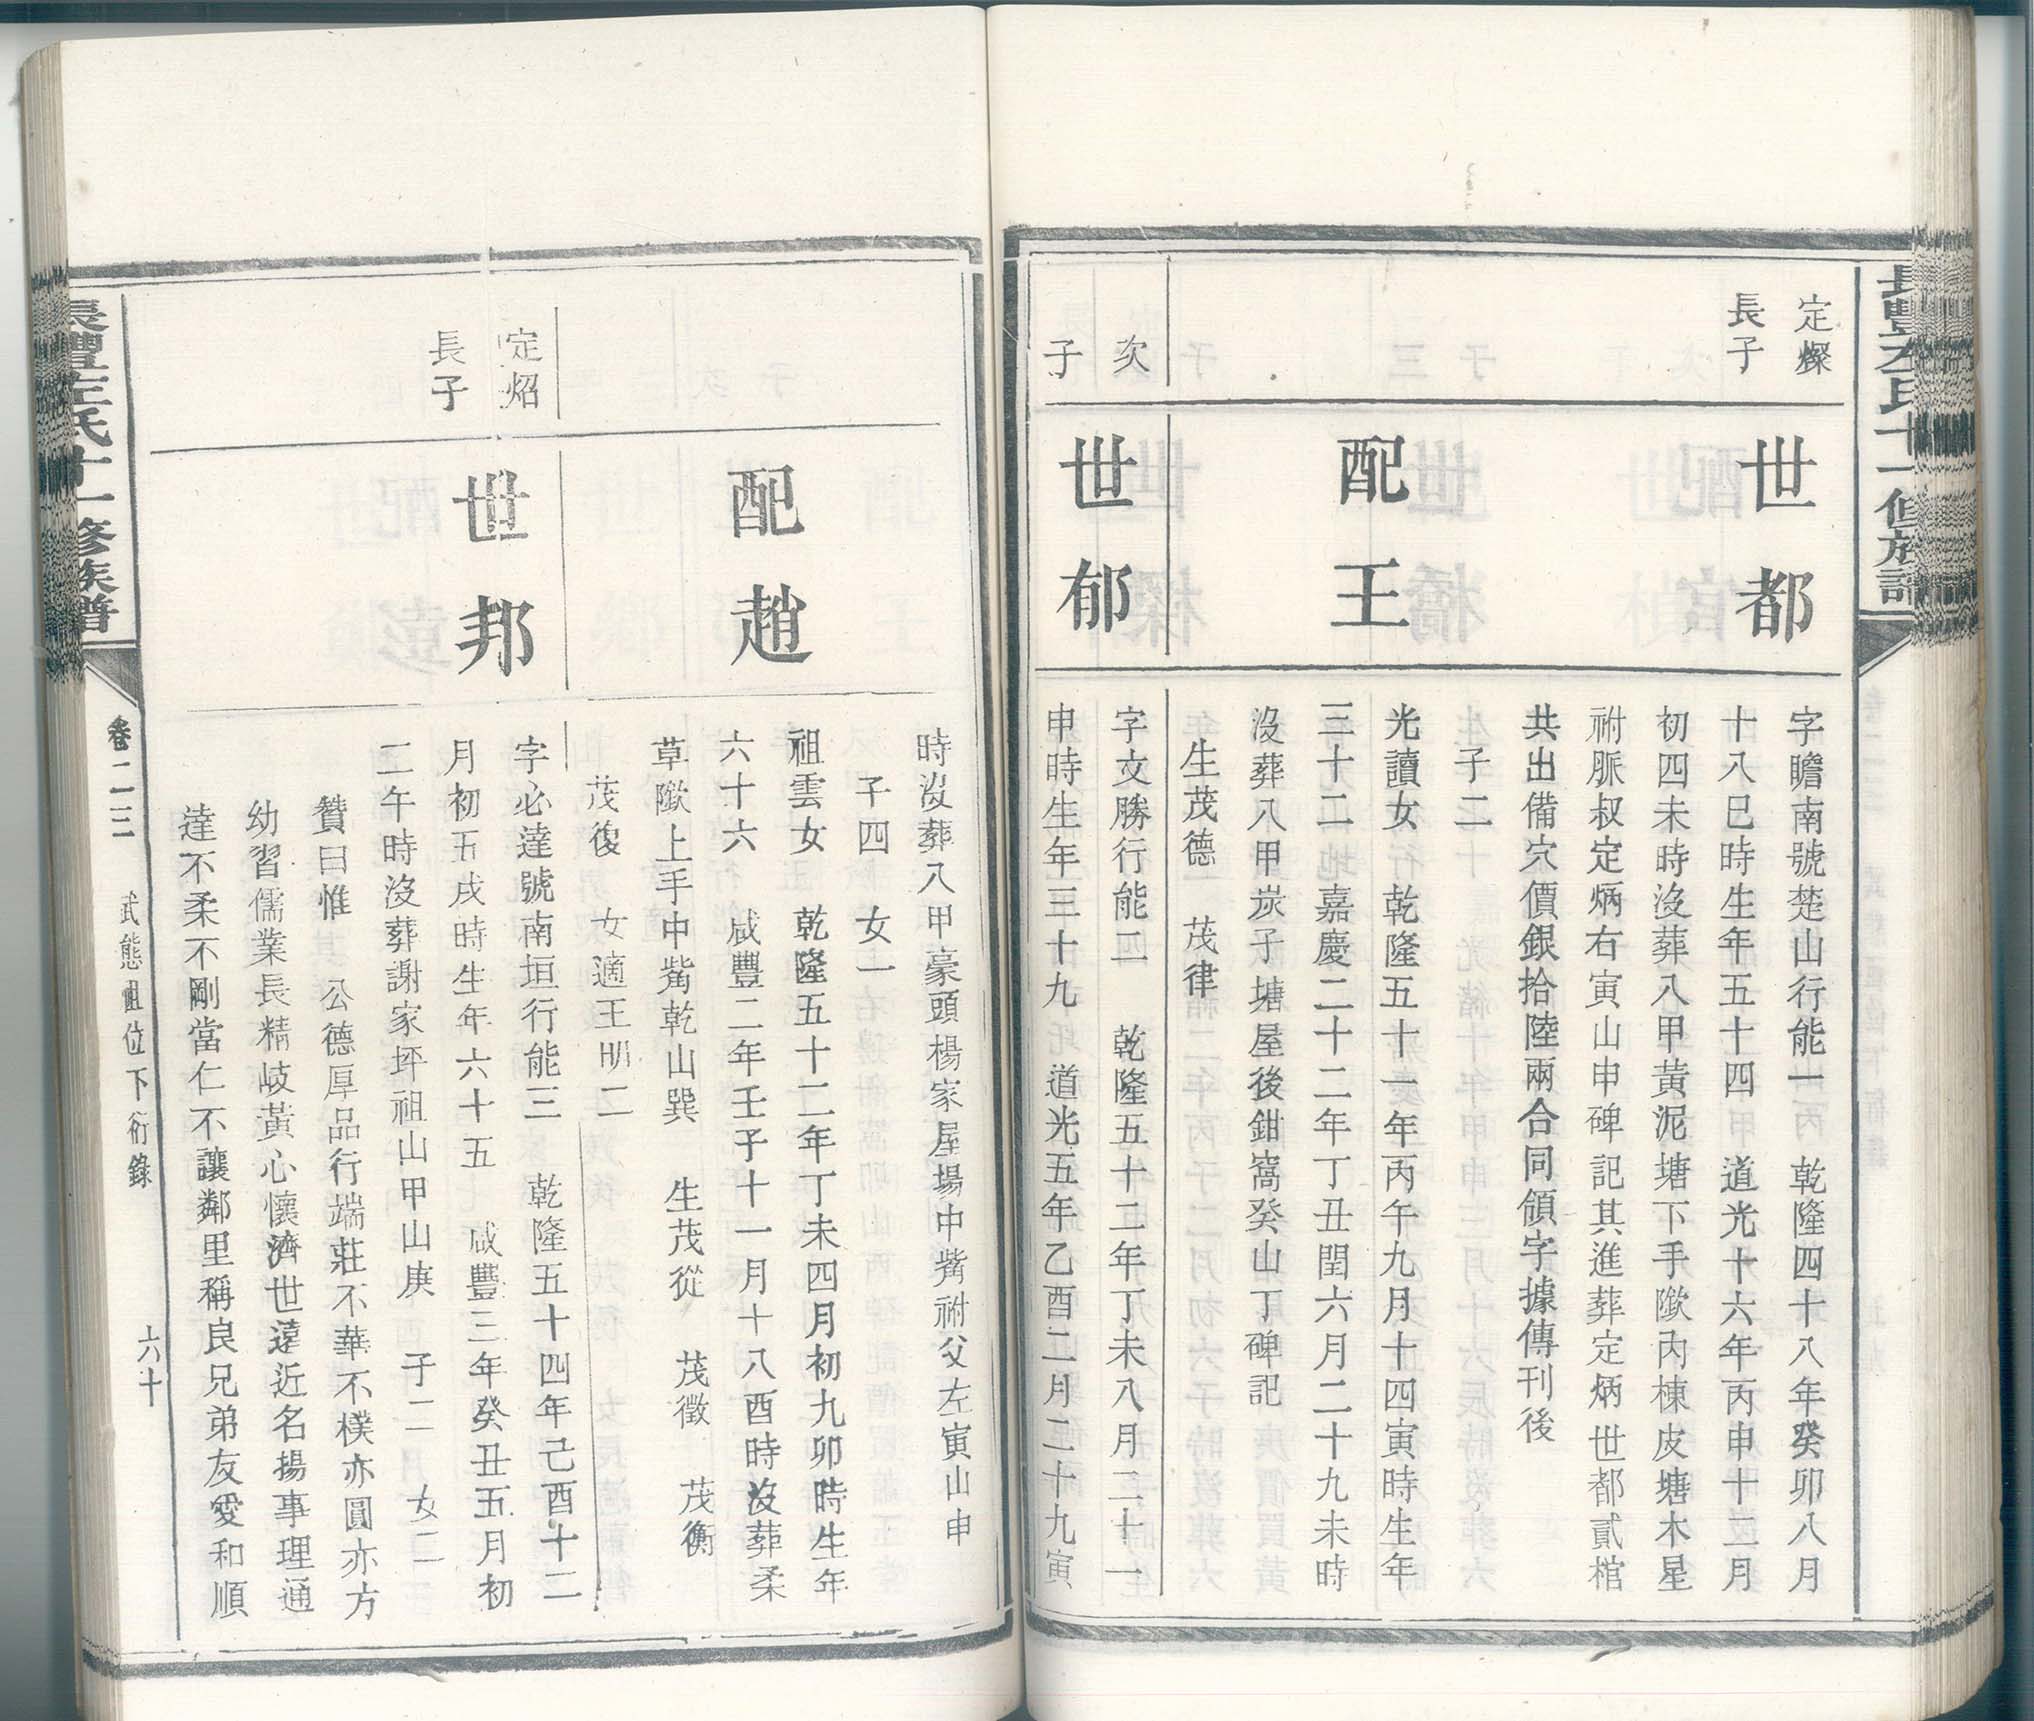 長豐左氏十一修族譜
定燦
長子
世都
字瞻南號楚山行能一　乾隆四十八年癸卯八月
十八巳時生年五十四　道光十六年丙申十二月
初四未時沒葬八甲黃泥塘下手隞內棟皮塘木星
祔脈叔定炳右寅山申碑記其進葬定炳世都貳棺
共出備穴價銀拾陸兩合同領字據傳刊後
子二
配王
光讀女　乾隆五十一年丙午九月十四寅時生年
三十二　嘉慶二十二年丁丑閏六月二十九未時
沒葬八甲炭子塘屋後鉗窩癸山丁碑記
生茂德　茂律
次
子
世郁
字文勝行能二　乾隆五十二年丁未八月二十一
申時生年三十九　道光五年乙酉二月二十九寅
時沒葬八甲豪頭楊家屋場中觜祔父左寅山申
子四　女一
配趙
祖雲女　乾隆五十二年丁未四月初九卯時生年
六十六　咸豐二年壬子十一月十八酉時沒葬柔
草隞上手中觜乾山巽　生茂從　茂徵　茂衡
茂復　女適王明二
定炤
長子
世邦
字必達號南垣行能三　乾隆五十四年己酉十二
月初五戌時生年六十五　咸豐三年癸丑五月初
二午時沒葬謝家坪祖山甲山庚　子二　女二
贊曰惟　公德厚品行端莊不華不樸亦圓亦方
幼習儒業長精岐黃心懷濟世遠近名揚事理通
達不柔不剛當仁不讓鄰里稱良兄弟友愛和順
長豐左氏十一修族譜
卷二三
武態祖位下衍錄
六十